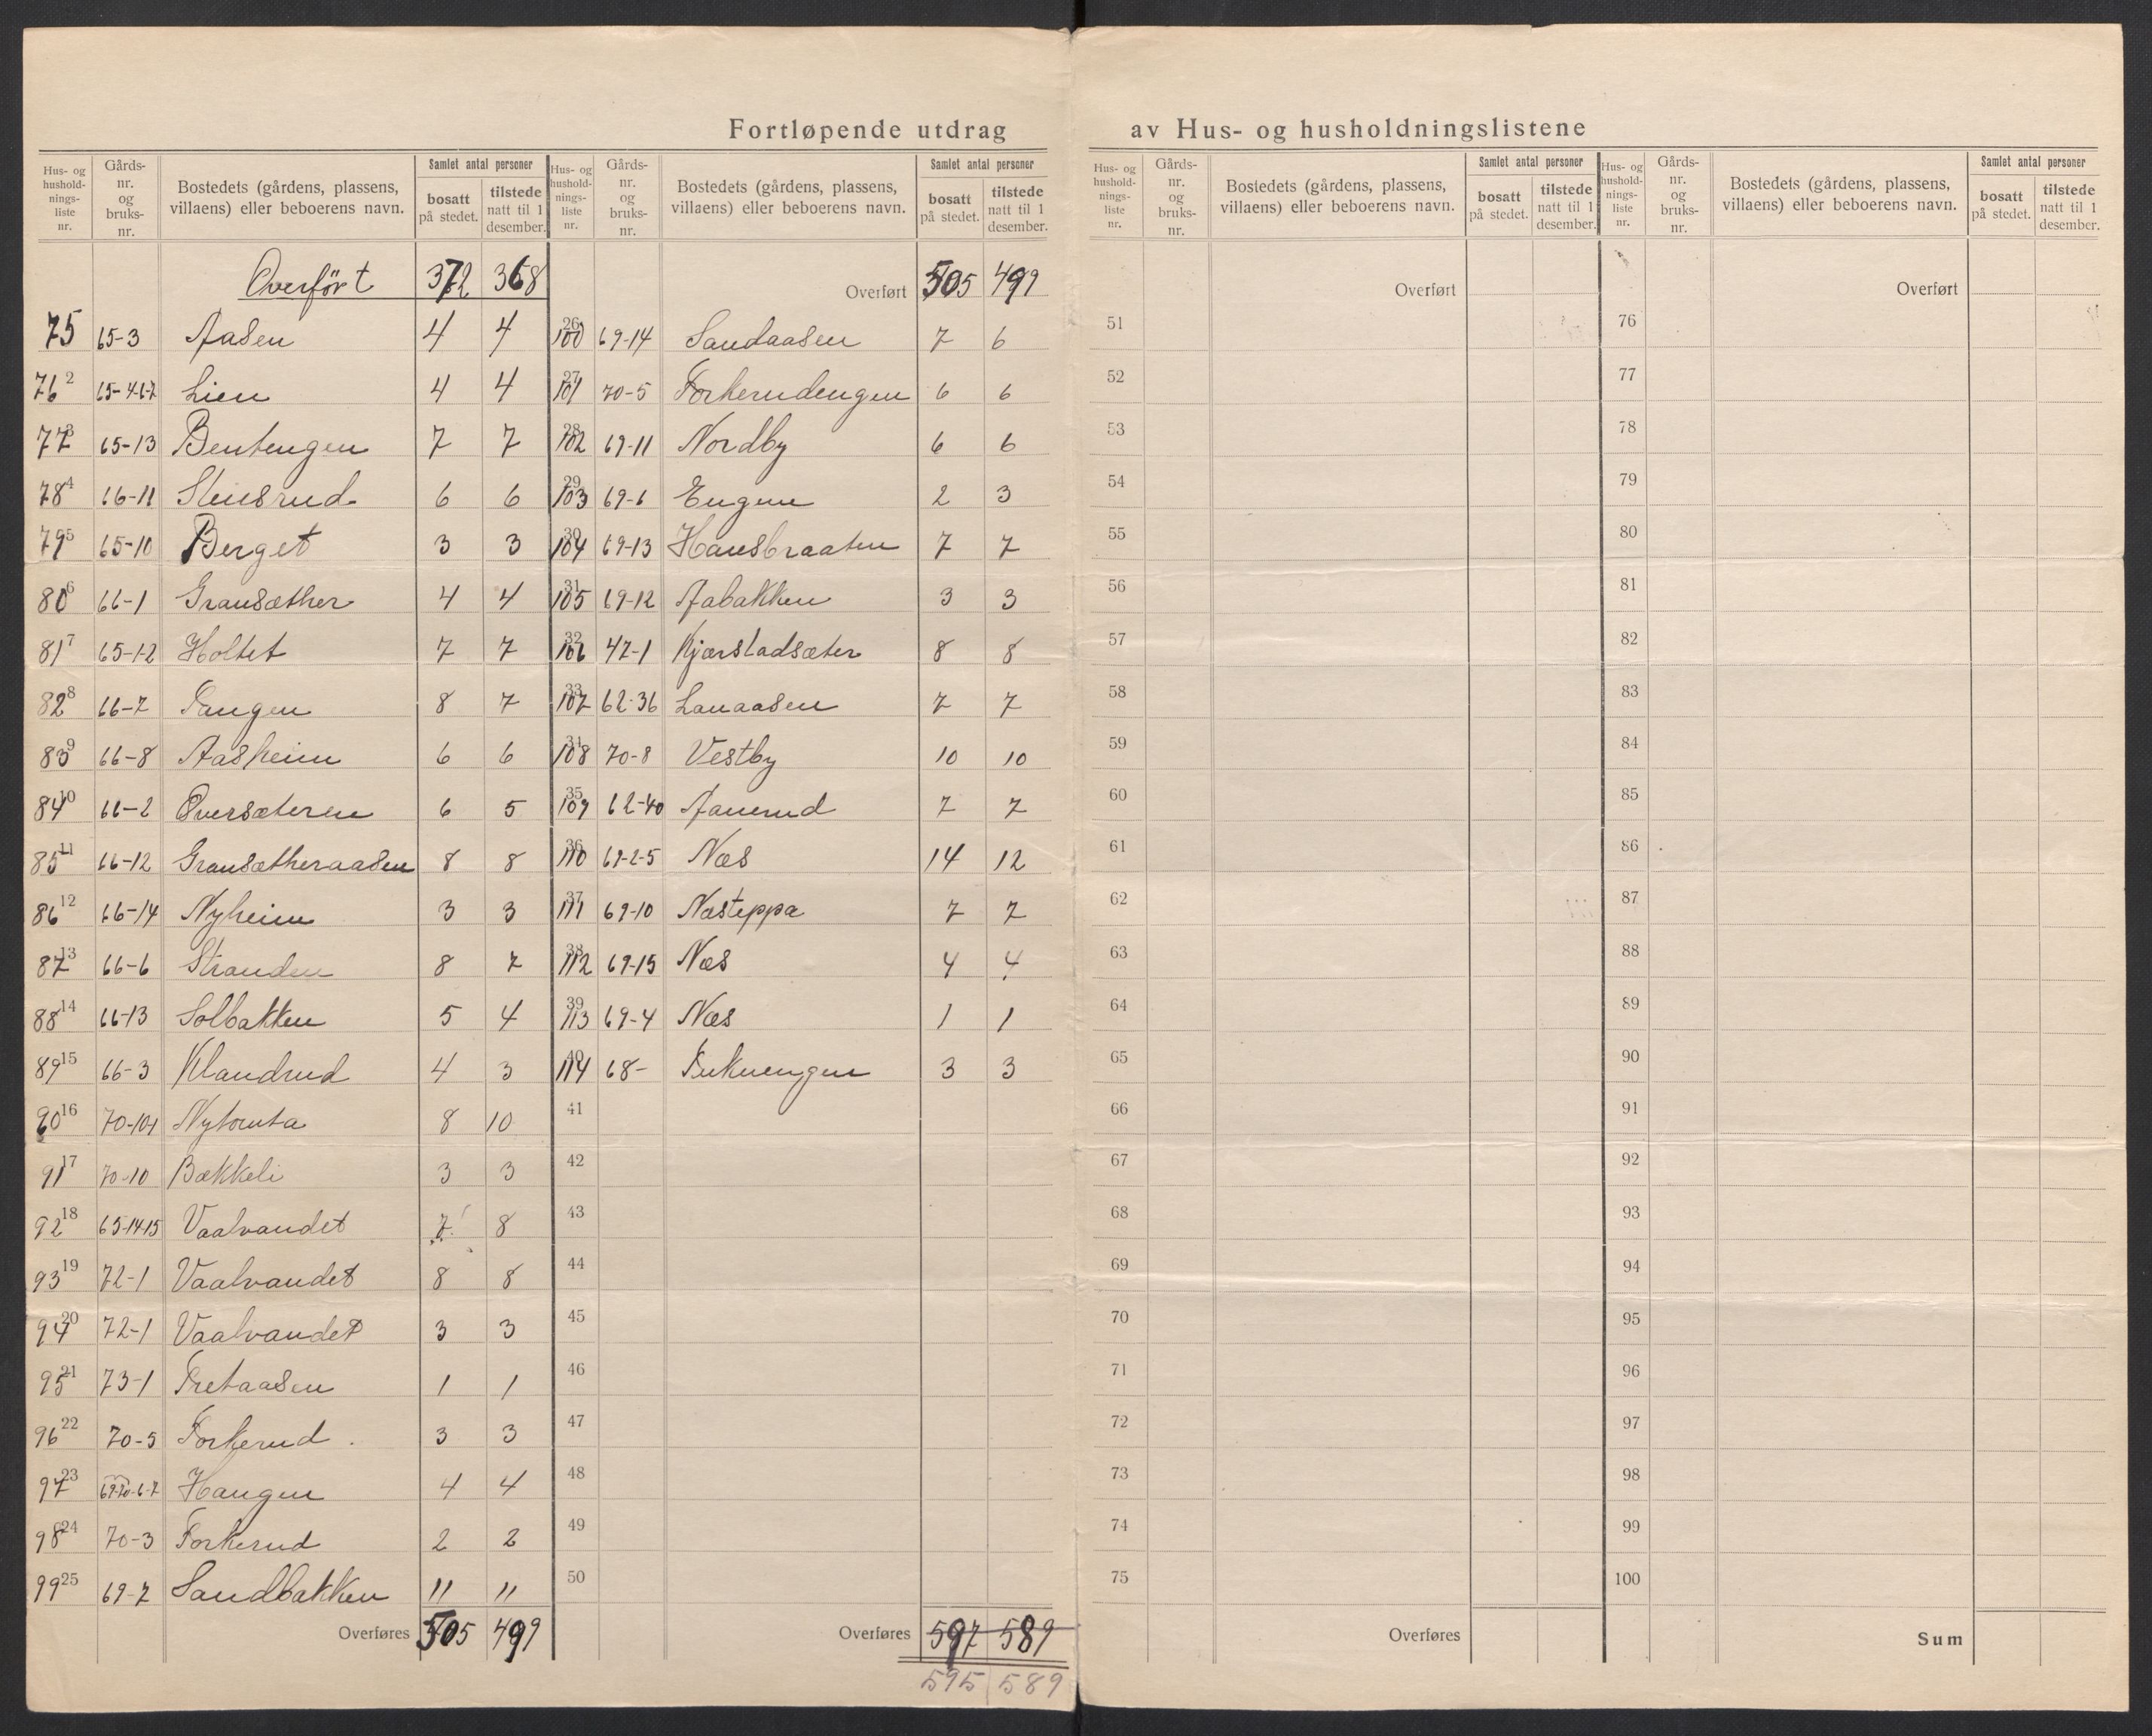 Fortløpende utdrag av Hus- og husholdningslistene
Hus- og hushold-nings-liste nr. Gårds-nr. og bruks-nr. Bostedets (gårdens, plassens, villaens) eller beboerens navn. Samlet antal personer bosatt på stedet. tilstede natt til 1 desember.
Overført 372 368
75 65-3 Aasen 4 4
76 2 65-4-6-7 Lien 4 4
77 3 65-13 Bentengen 7 7
78 4 66-11 Stensrud 6 6
79 5 65-10 Berget 3 3
80 6 66-1 Gransæther 4 4
81 7 65-12 Holtet 7 7
82 8 66-7 Tangen 8 7
83 9 66-8 Aasheim 6 6
84 10 66-2 Oversæteren 6 5
85 11 66-12 Gransætheraasen 8 8
86 12 66-14 Nyheim 3 3
87 13 66-6 Stranden 8 7
88 14 66-13 Solbakken 5 4
89 15 66-3 Klandrud 4 3
90 16 70-10-1 Nytomta 8 10
91 17 70-10 Bækkeli 3 3
92 18 65-14-15 Vaalvandet 7 8
93 19 72-1 Vaalvandet 8 8
94 20 72-1 Vaalvandet 3 3
95 21 73-1 Tretaasen 1 1
96 22 70-5 Torkerud 3 3
97 23 69-70-6-7 Haugen 4 4
98 24 70-3 Torkerud 2 2
99 25 69-7 Sandbakken 11 11
Overføres 505 499
Hus- og hushold-nings-liste nr. Gårds-nr. og bruks-nr. Bostedets (gårdens, plassens, villaens) eller beboerens navn. Samlet antal personer bosatt på stedet. tilstede natt til 1 desember.
Overført 505 499
26 100 69-14 Sandaasen 7 6
27 101 70-5 Torkerudengen 6 6
28 102 69-11 Nordby 6 6
29 103 69-6 Engene 2 3
30 104 69-13 Hansbraaten 7 7
31 105 69-12 Aabakken 3 3
32 106 47-1 Kjærstadsæter 8 8
33 107 62-36 Lanaasen 7 7
34 108 70-8 Vestby 10 10
35 109 62-40 Aanerud 7 7
36 110 69-2-5 Næs 14 12
37 111 69-10 Næsteppa 7 7
38 112 69-15 Næs 4 4
39 113 69-4 Næs 1 1
40 114 68- 3 3
41
42
43
44
45
46
47
48
49
50
Overføres 597 589
595 589
Hus- og hushold-nings-liste nr. Gårds-nr. og bruks-nr. Bostedets (gårdens, plassens, villaens) eller beboerens navn. Samlet antal personer bosatt på stedet. tilstede natt til 1 desember.
Overført
51
52
53
54
55
56
57
58
59
60
61
62
63
64
65
66
67
68
69
70
71
72
73
74
75
Overføres
Hus- og hushold-nings-liste nr. Gårds-nr. og bruks-nr. Bostedets (gårdens, plassens, villaens) eller beboerens navn. Samlet antal personer bosatt på stedet. tilstede natt til 1 desember.
Overført
76
77
78
79
80
81
82
83
84
85
86
87
88
89
90
91
92
93
94
95
96
97
98
99
100
Sum